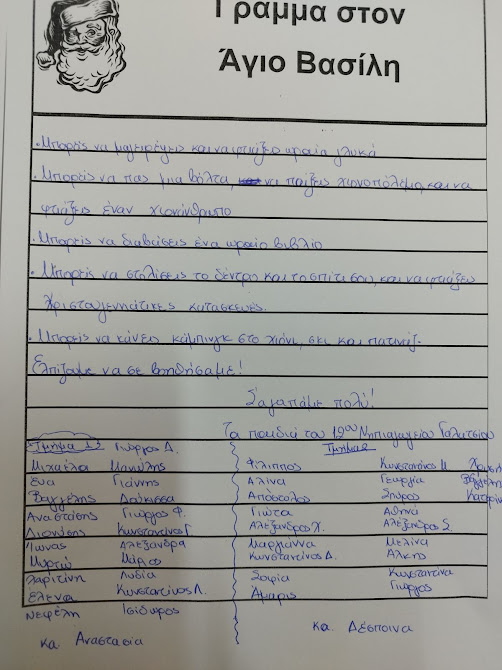 Γράμμα στον
Άγιο Βασίλη
. Μπορείς να μαγειρέψεις και να φτιάξεις ωραία γλυκά
. Μπορείς να πας μια βόλτα, να παίξεις χιονοπόλεμο, και να
φτιάξεις έναν χιονάνθρωπο
. Μπορείς να διαβάσεις ένα ωραίο βιβλίο
. Μπορείς να στολίσεις το δέντρο και το σπίτι σου, και να φτιάξεις
Χριστουγεννιάτικες κατασκευές.
. Μπορείς να κάνεις κάμπινγκ στο χιόνι, σκι και πατινάζ.
Ελπίζουμε να σε βοηθήσαμε!
Σ'αγαπάμε πολύ!
Τα παιδιά του 12ου Νηπιαγωγείου Γαλατσίου
Τμήμα 1: Γιώργος Δ. Τμήμα 2
Μιχαέλα Μανώλης Φίλιππος Κωνσταντίνος Μ
Εύα Γιάννης Αλίνα Γεωργία
Βαγγέλης Δούκισσα Απόστολος Σπύρος Κατερίν
Αναστάσης Γιώργος Φ. Γιώτα Αθηνά
Διονύσης Κωνσταντίνος Γ Αλέξανδρος Χ. Αλέξανδρος Σ.
Ίωνας Αλεξάνδρα Μαριάννα Μελίνα
Μυρτώ Μάριο Κωνσταντίνος Δ. Άλκης
Χαριτίνη Λυδία Σοφία Κωνσταντίνα
Έλενα Κωνσταντίνος Λ. Άμαρις Γιώργος
Νεφέλη Ισίδωρος
κα Αναστασία κα. Δέσποινα